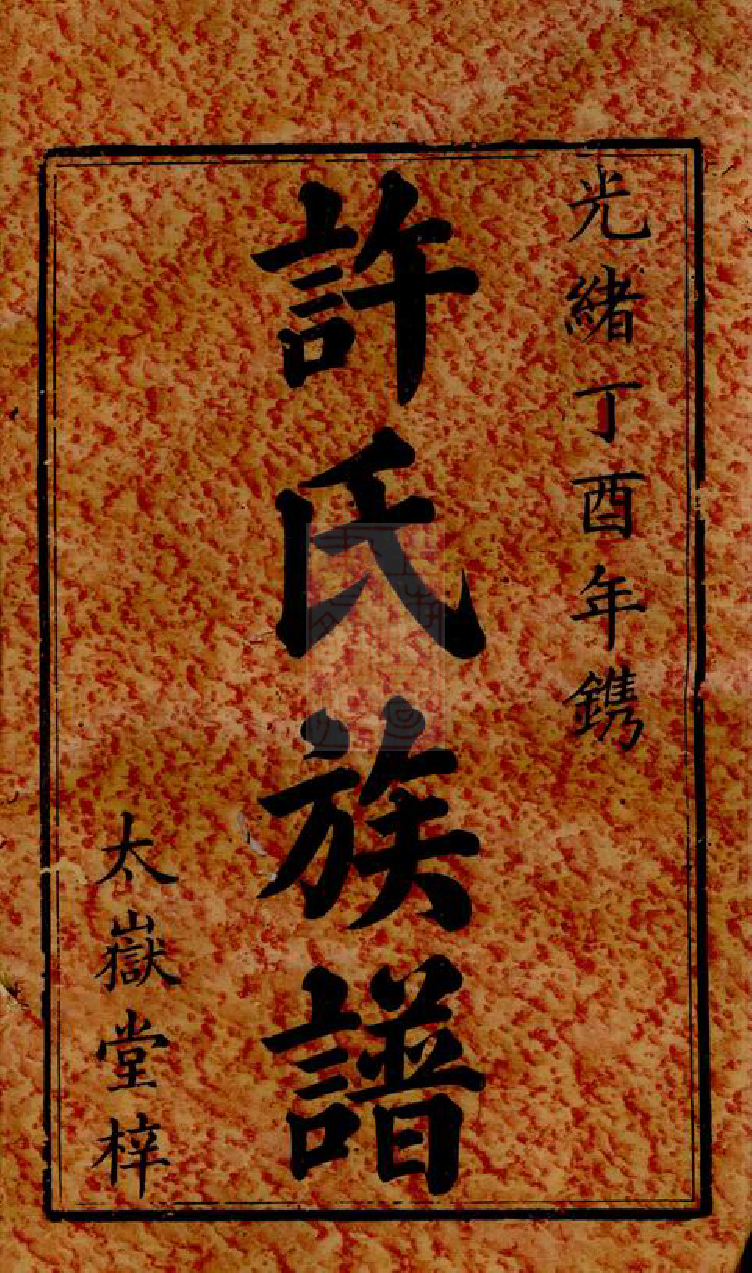 光緒丁酉年鐫
許氏族譜
太嶽堂梓